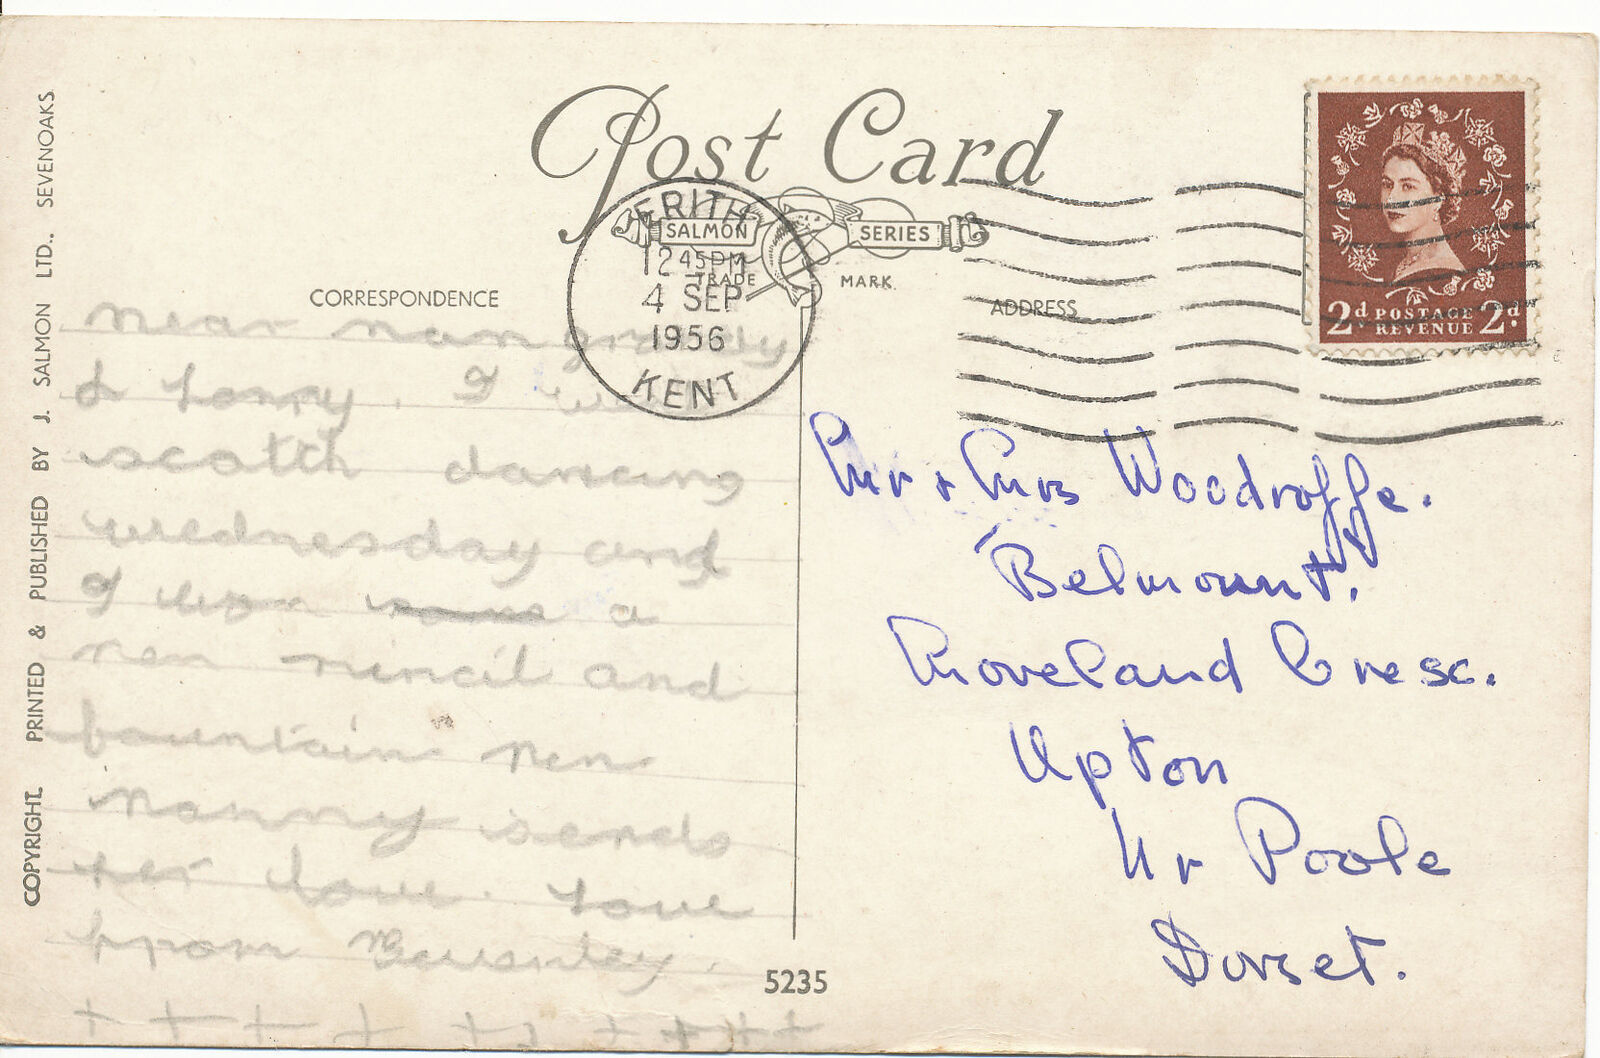 COPYRIGHT. PRINTED & PUBLISHED BY J. SALMON LTD., SEVENOAKS
Post Card
SALMON SERIES
TRADE MARK
CORRESPONDENCE
ADDRESS
ERITH
12 45 PM
4 SEP
1956
KENT
2d POSTAGE REVENUE 2d
near nan
& I
scotch dancing
wednesday and
I won a
pen pencil and
fountain pen
nanny sends
her love. love
from Beverley.
+ + + + + + + + + +
Mr + Mrs Woodroffe.
Belmount.
Moveland Cresc.
Upton
Nr Poole
Dorset.
5235